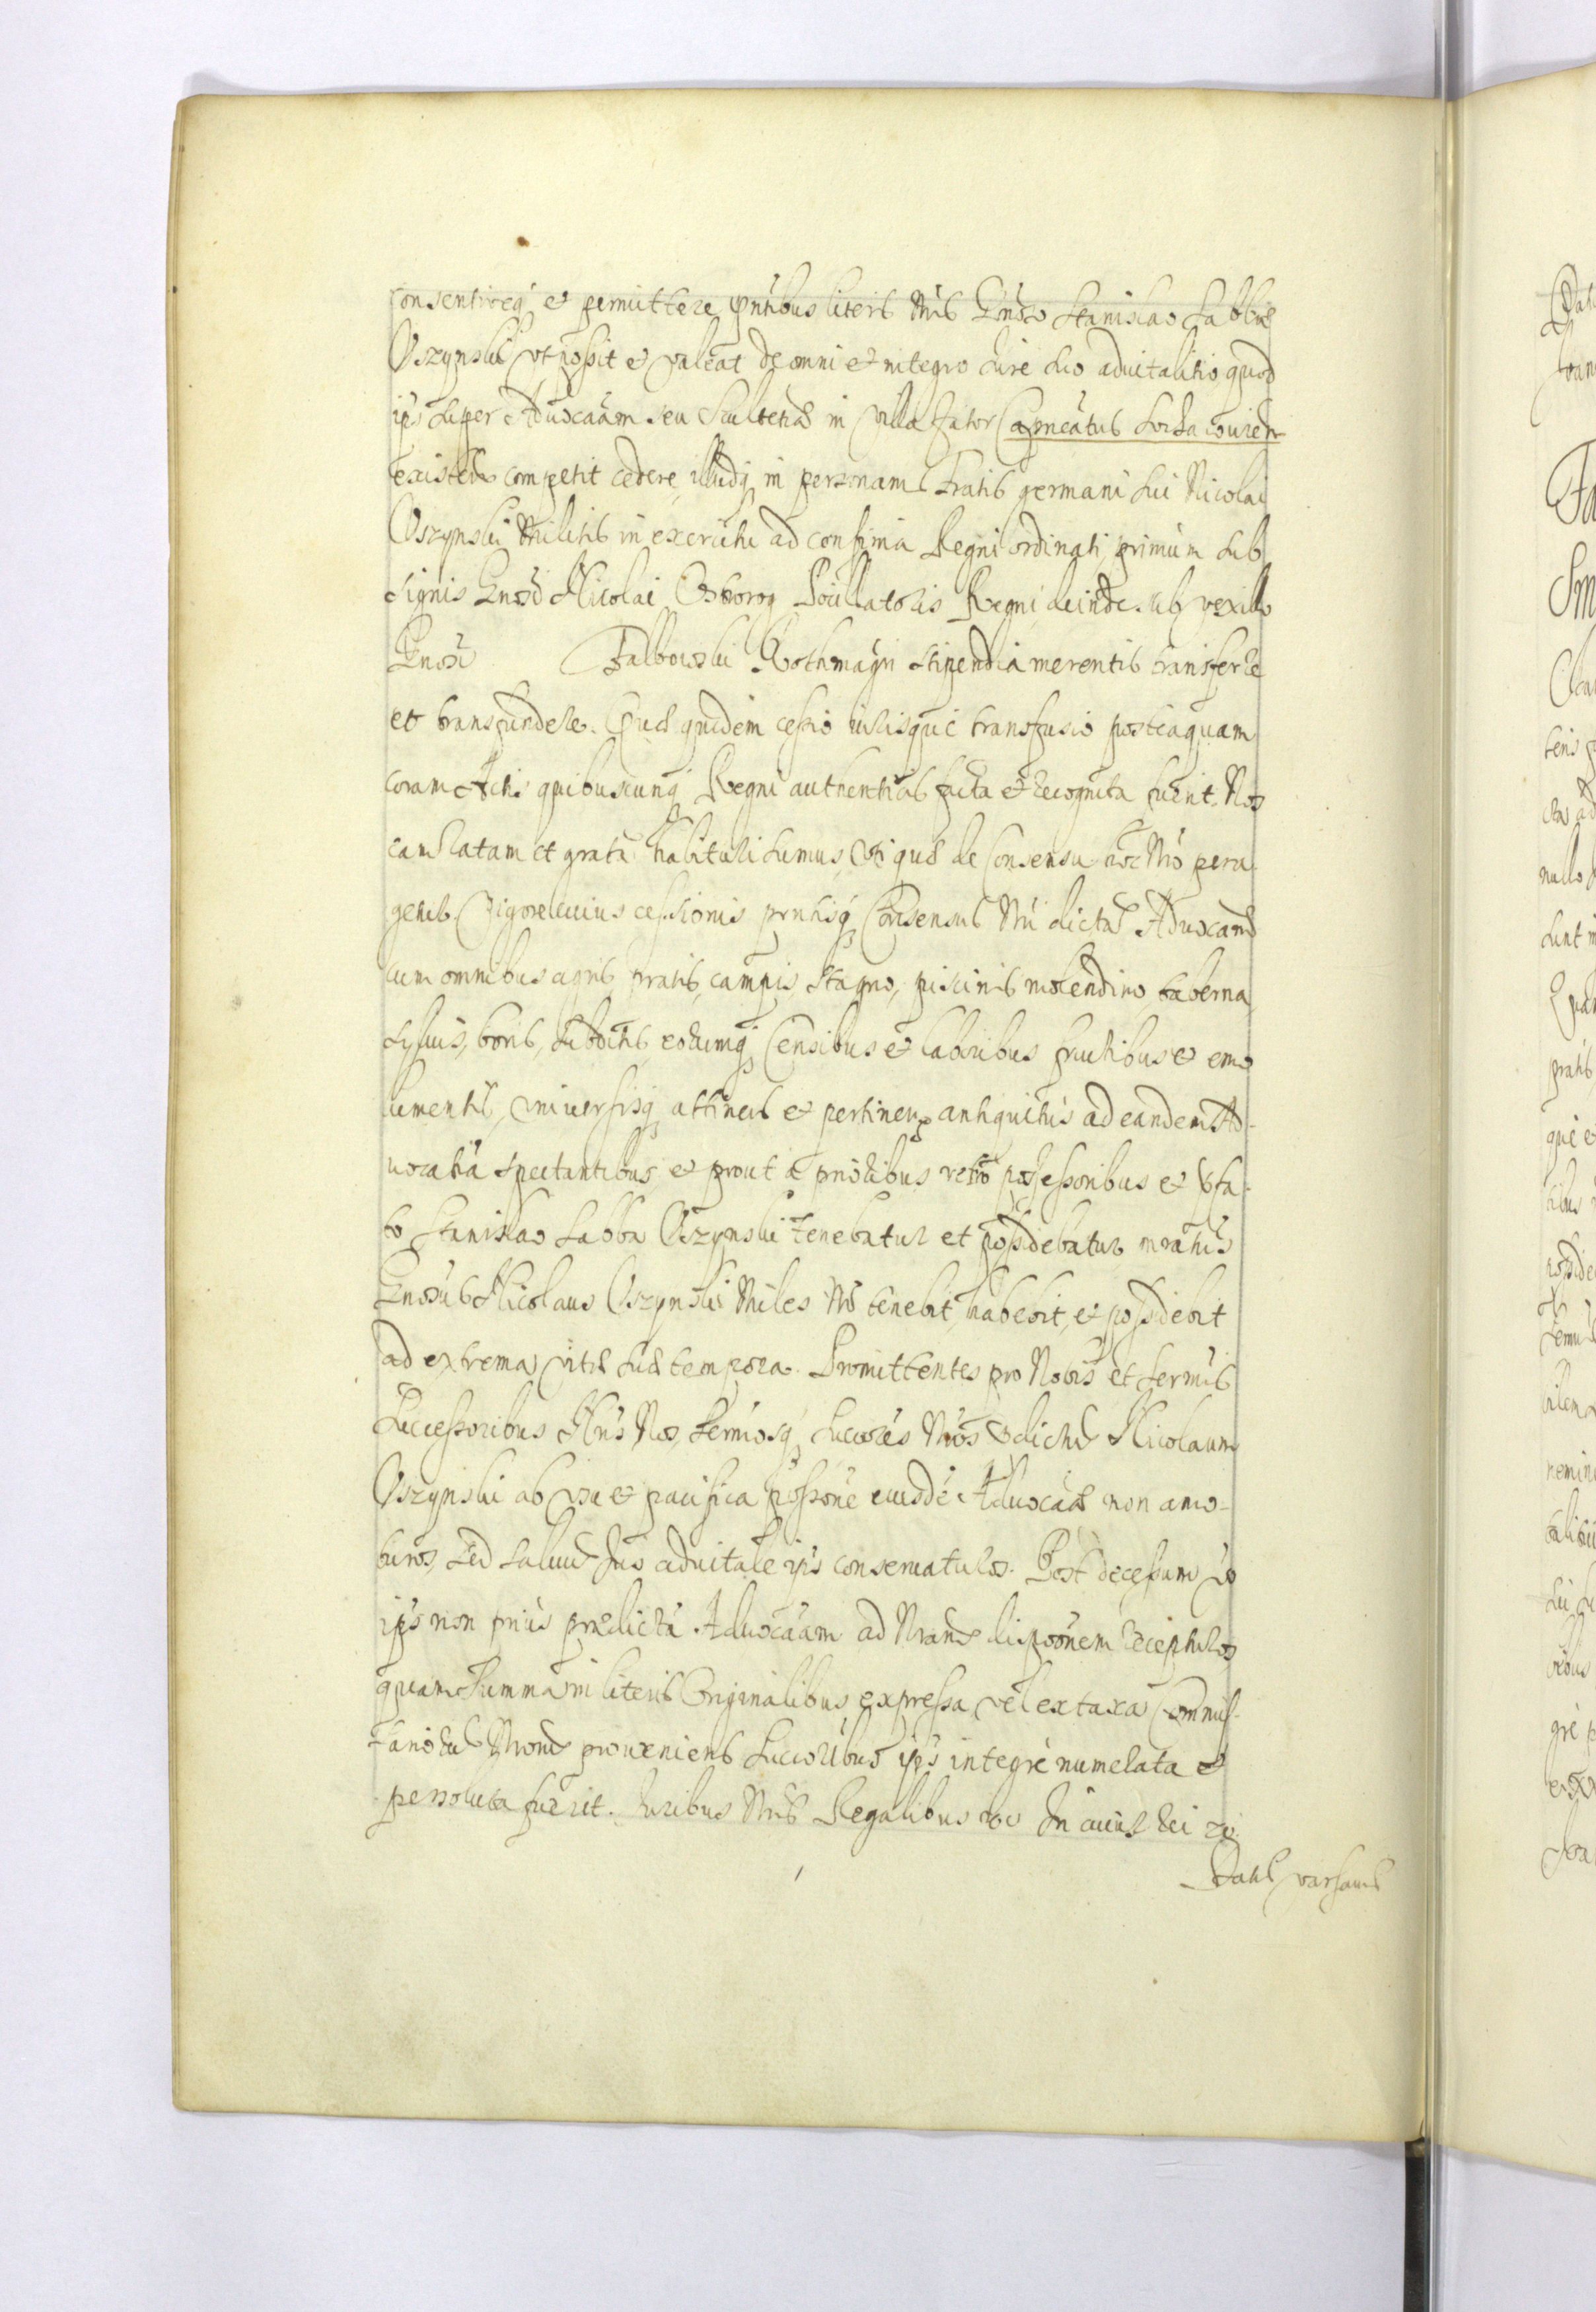 consentireq et permittere pntibus literis Nris Gnoso Stanislao Sabba
Oszynski ut possit et valeat de omni et integro Jure suo aduitalitio quod
ipsi super Aduocatiam seu Scultetia in villa Jator Capneatus
existen competit cedere, illudq in personam fratris germani sui Nicolai
Oszynski Militis in exercitu ad confinia Regni ordinati, primum sub
signis Gnosi Nicolai Ostrorog Pocillatoris Regni, deinde sub vexillo
Gnosi Falbowski Rothmagri stipendia merentis transferre
et transfundere. Quae quidem cessio iurisque transfusio posteaquam
coram Actis quibuscunq Regni authenticis facta et recognita fuerit. Nos
eam ratam et grata habituri sumus, uti quae de Consensu hoc Nro pera
getur. Vigore cuius cessionis pntisq Consensus Nri dicta Aduocatia
cum omnibus agris pratis, campis, stagno, piscinis molendino taberna
syluis, boris, subditis, eorumq Censibus et laboribus fructibus et emo
lumentis, vniuersisq attinen et pertinen antiquitus ad eandem Ad-
uocatia spectantibus et prout a prioribus retro possessoribus et vfa-
to Stanislao Sabba Oszynski tenebatur et possidebatur, mratus
Gnosus Nicolaus Oszynski Miles Nr tenebit, habebit, et possidebit
ad extrema vitae suae tempora. Promittentes pro Nobis et Sermis
Successoribus Nris Nos, Sermosq Succores Nros dictu Nicolaum
Oszynski ab vsu et pacifica possone eiusde Aduocatiae non amo-
turos, sed saluu Jus aduitale ipsi conseruaturos. Post decessum vo
ipsi non prius praedicta Aduocatiam ad Nram dispoonem recepturos
quam Summa in literis Originalibus expressa, vel ex taxa Commis-
sariorum Nrorum proueniens succoribus ipsi integre numerata et
persoluta fuerit. Juribus Nris Regalibus In cuius rei
Datu varsauiae